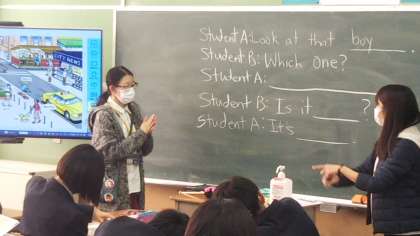 CITY NEWS
Student A: Look at that boy.
Student B: Which one?
Student A:
Student B: Is it ?
Student A: Its